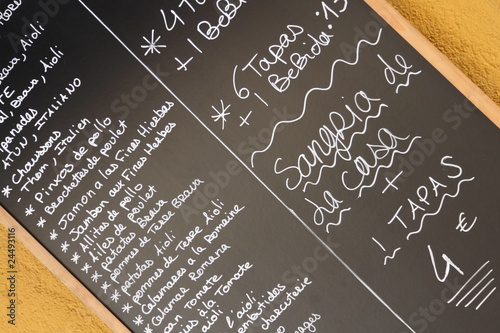 Bravas, Aïoli
ATUN, ITALIANO
* Chaussons
- Thon, Italien
* Pinxos de pollo
* Brochettes de poulet
* Jamon a las Fines Hierbas
* Jambon aux Fines Herbes
* Allitas de pollo
* Ailes de poulet
* patatas Brava
* pommes de Terre Brava
* patatas Aïoli
* pommes de Terre Aïoli
* Calamares a la Romaine
* Calamar Romana
pan Tomate
la Tomate
aïoli
l'aïoli
embotidos
charcuterie
* 4 
+ 1 BeBiD
* 6 Tapas
+ 1 BeBida : 13
Sangria de
la Casa
+
1 TAPAS
4 €